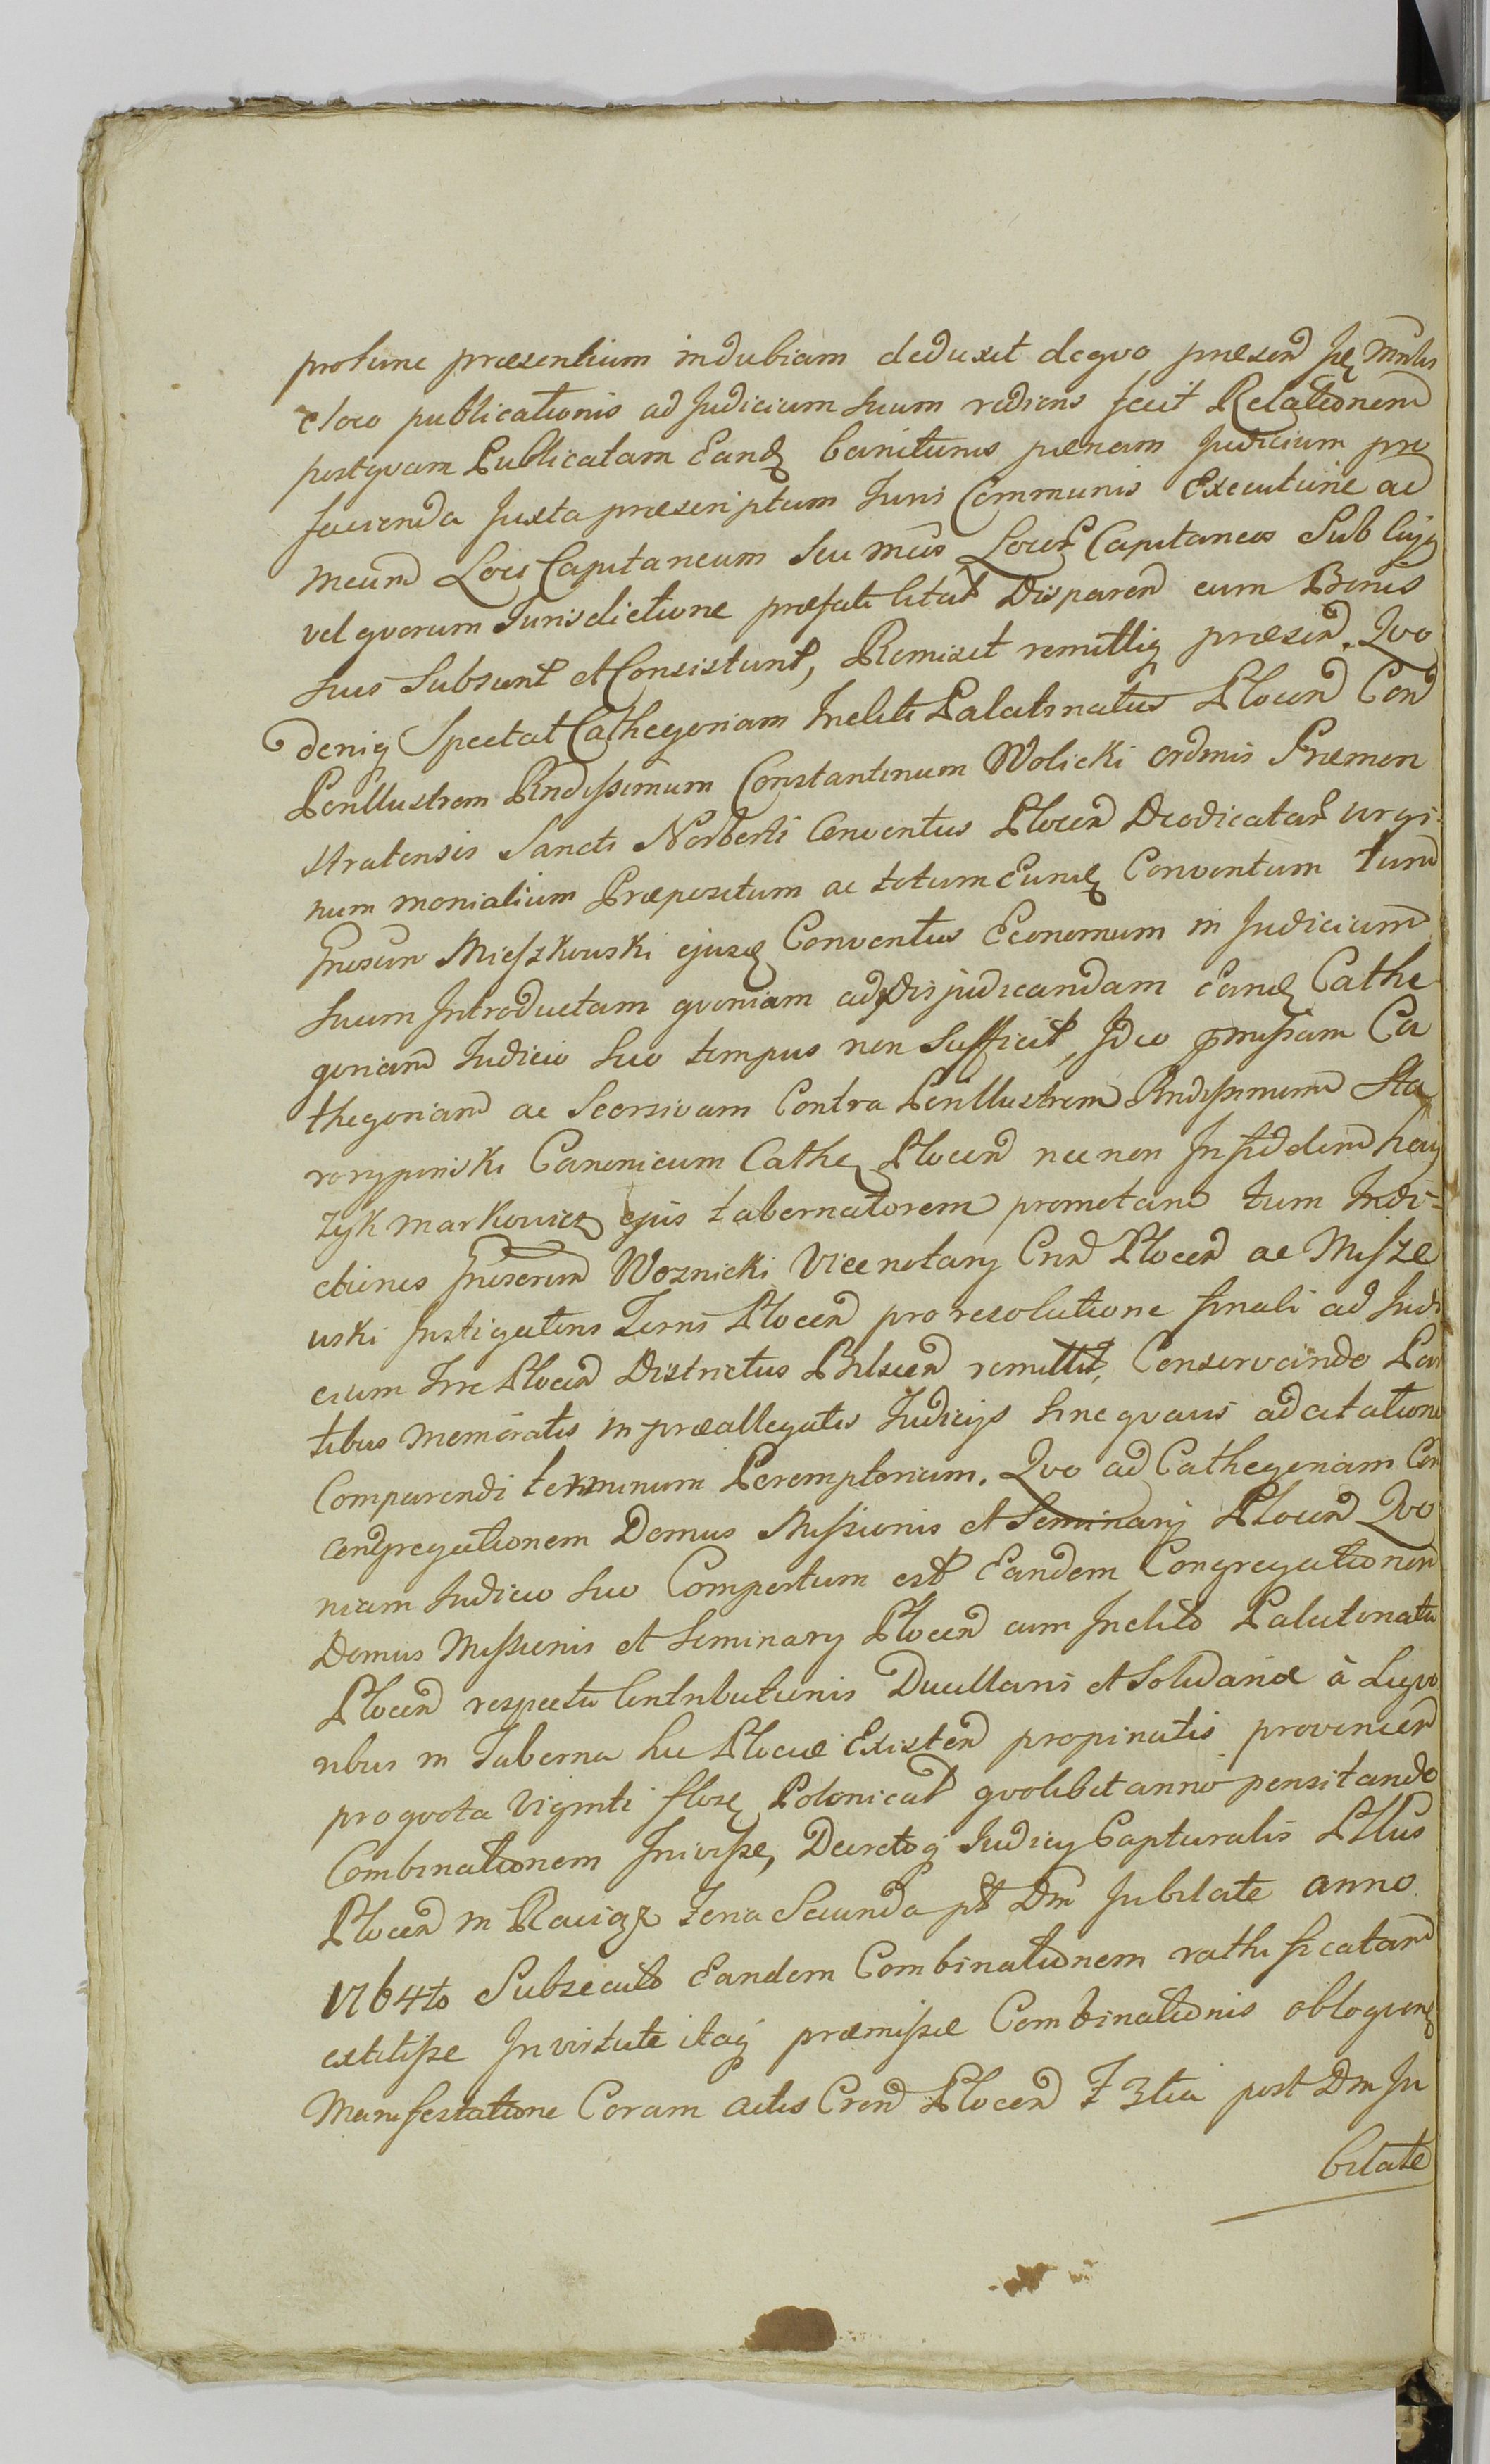 protunc præsentium indubiam deduxit dequo præsend sæ Mnlis
eloco publicationis ad Judicium suum rediens fecit Relationem
postquam Publicatam Eandq banitionis pænam Judicium pro
facienda Juxta præscriptum Juris Communis Executione ad
meum Loci Capitaneum seu meos Locor Capitaneos Sub Cujq
vel quorum Jurisdictione præfati Citat Disparen cum Bonis
suis Subsunt et Consistunt, Remisit remittiq præsen. Quo
deniq Spectat Cathegoriam Incliti Palatinatus Plocen Con
Perillustrem Rndissimum Constantinum Wolicki ordinis Præmon
stratensis Sancti Norberti Conventus Plocen Deodicatar virgi
num monialium Præpositum ac totum Eumq Conventum tum
Gnosum Mieszkowski ejusq Conventus Economum in Judicium
suum Introductam quoniam ad disjudicandam Eanq Cathe
goriam Judicio suo tempus non Sufficit, Ideo pmissam Ca
thegoriam ac Seorsivam Contra Perillustrem Rndissimum Sta
rorypinski Canonicum Cathe Plocen necnon Infidelem hay
zyk Markowicz ejus tabernatorem promotam tum Indi-
ctionis Gnosorum Woznicki Vicenotary Crn Plocen ac Misze
wski Instigatoris Terris Plocen pro resolutione finali ad Judi
cium Trre Plocen Districtus Bilscen remittit, Conservando Par
tibus memoratis in præallegatis Judicijs sine quavis adcitatione
Comparendi terminum Peremptorium. Quo ad Cathegoriam Con
congregationem Domus Missionis et Seminarij Plocen Quo
niam Judicio suo Compertum est Eandem Congregationem
Domus Missionis et Seminary Plocen cum Inclito Palatinatu
Plocen respectu Contributionis Ducillaris et Solidariæ à Liquo
ribus in Taberna hic Plociæ Existen propinatis provenien
pro quota Viginti flore Polonical quolibet anno pensitando
Combinationem Inivisse, Decretoq Judicij Capturalis Pltlus
Plocen in Raciąz Feria Secunda pt Dm Jubilate anno
1764to Subsecuto Eandem Combinationem rathificatam
extitisse Invirtute itaq præmissæ Combinationis obloquenq
Manifestatione Coram actis Cren Plocen F 3tia post Dm Ju
bilate